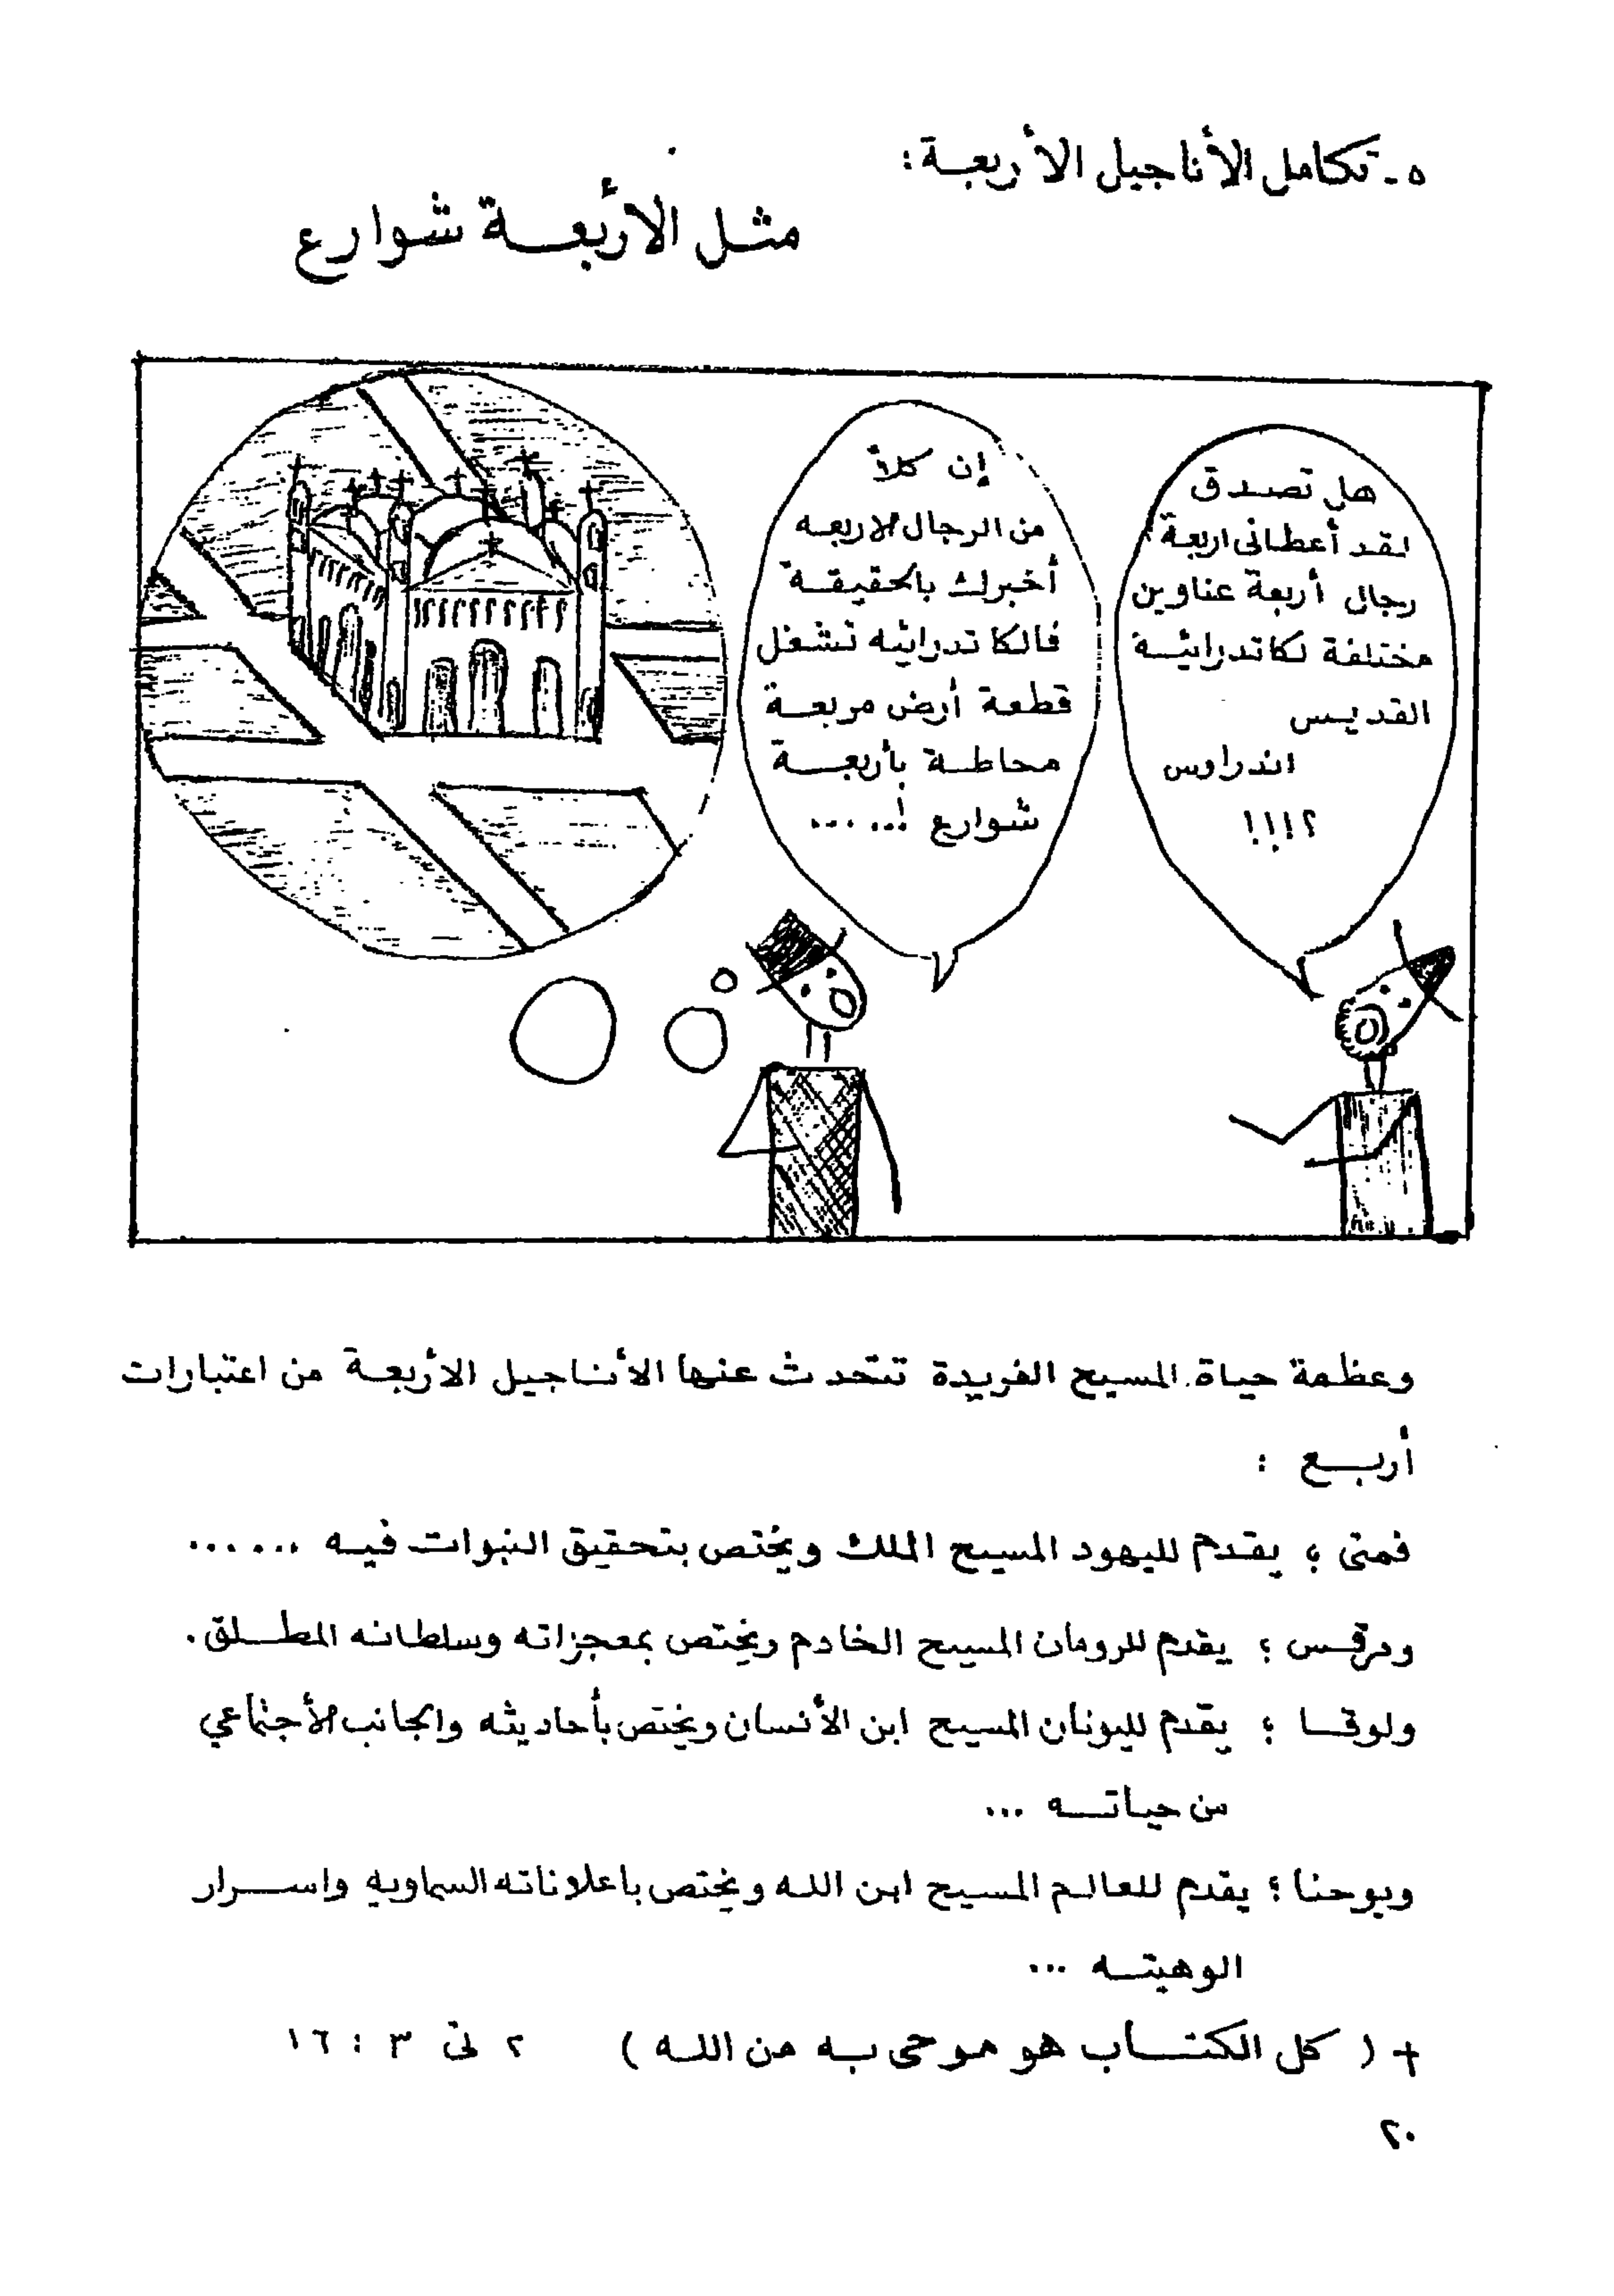 ٥ - تكامل الأناجيل الأربعة :
مثل الأربعة شوارع
هل تصدق
لقد أعطانى اربعة
رجال أربعة عناوين
مختلفة لكاتدرائية
القديس
اندراوس
؟!!!
إن كلاً
من الرجال الاربعه
أخبرك بالحقيقة
فالكاتدرائيه تشغل
قطعة أرض مربعة
محاطة بأربعة
شوارع !.....
وعظمة حياة المسيح الفريدة تتحدث عنها الأناجيل الأربعة من اعتبارات
أربع :
فمتى ؛ يقدم لليهود المسيح الملك ويختص بتحقيق النبوات فيه ......
ومرقس ؛ يقدم للرومان المسيح الخادم ويختص بمعجزاته وسلطانه المطلق .
ولوقا ؛ يقدم لليونان المسيح ابن الأنسان ويختص بأحاديثه والجانب الأجتماعي
من حياته ...
ويوحنا ؛ يقدم للعالم المسيح ابن الله ويختص باعلاناته السماويه واسرار
الوهيته ...
+ ( كل الكتاب هو موحى به من الله ) ٢ تى ٣ : ١٦
٢٠